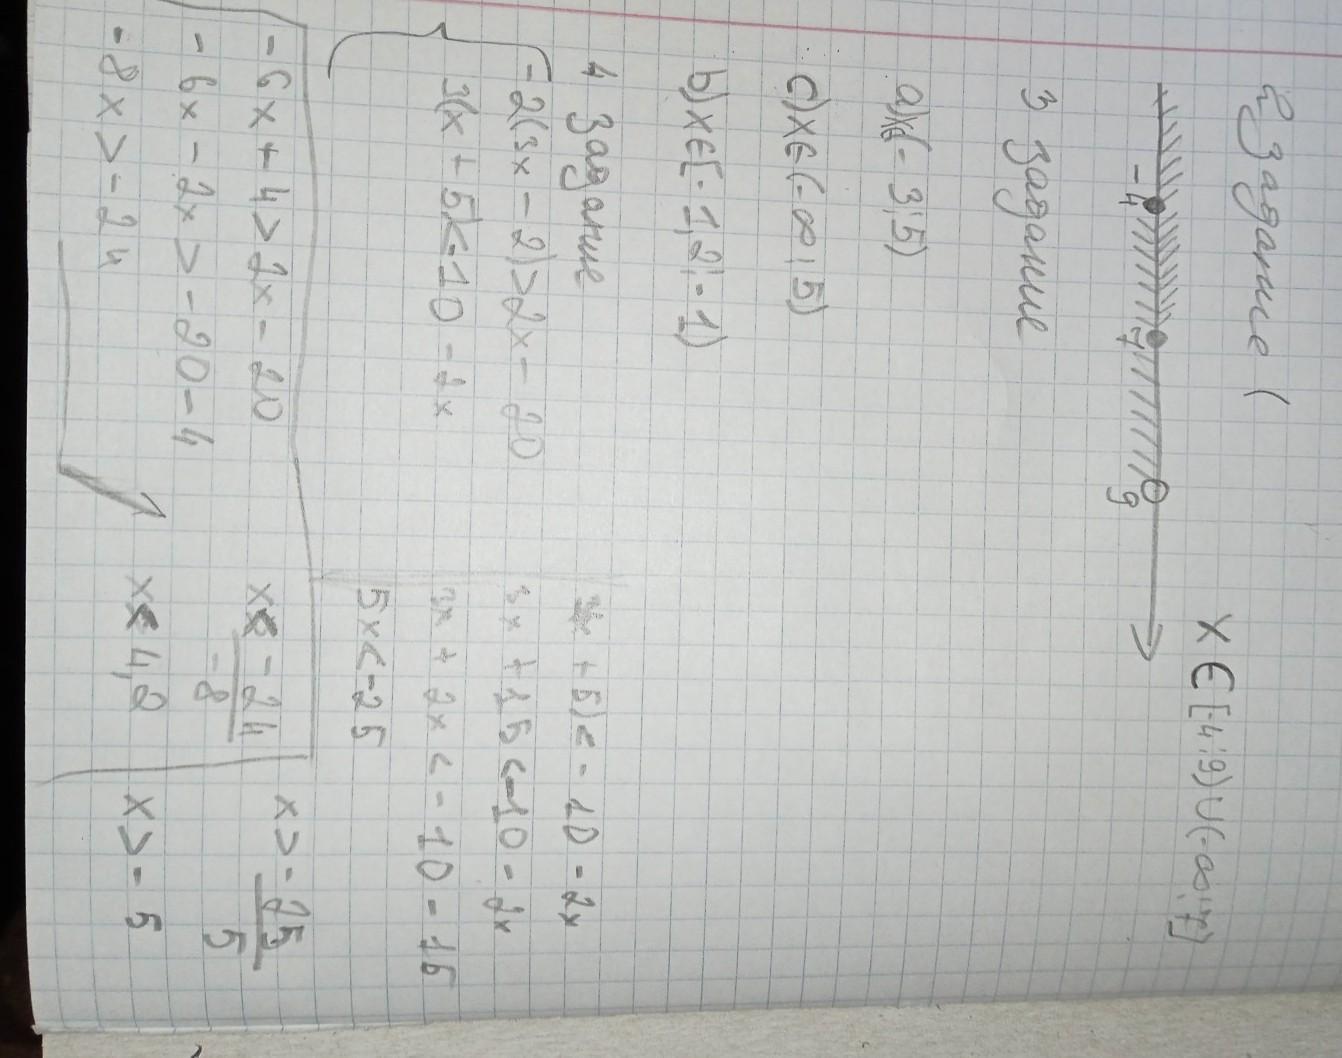 2 Задание (
X ∈ [-4; 9) ∪ (-∞; 7]
-4 7 9
3 Задание
a) x∈(-3; 5)
c) X ∈ (-∞; 5)
b) X ∈ [-1,2; -1)
4 Задание
-2(3x - 2) > 2x - 20
3(x + 5) < -10 - 2x
-6x + 4 > 2x - 20
-6x - 2x > -20 - 4
-8x > -24
x < -24
-8
x < 4,2
+ 5) < -10 - 2x
3x + 15 < -10 - 2x
3x + 2x < -10 - 15
5x < -25
x > -25
5
x > -5